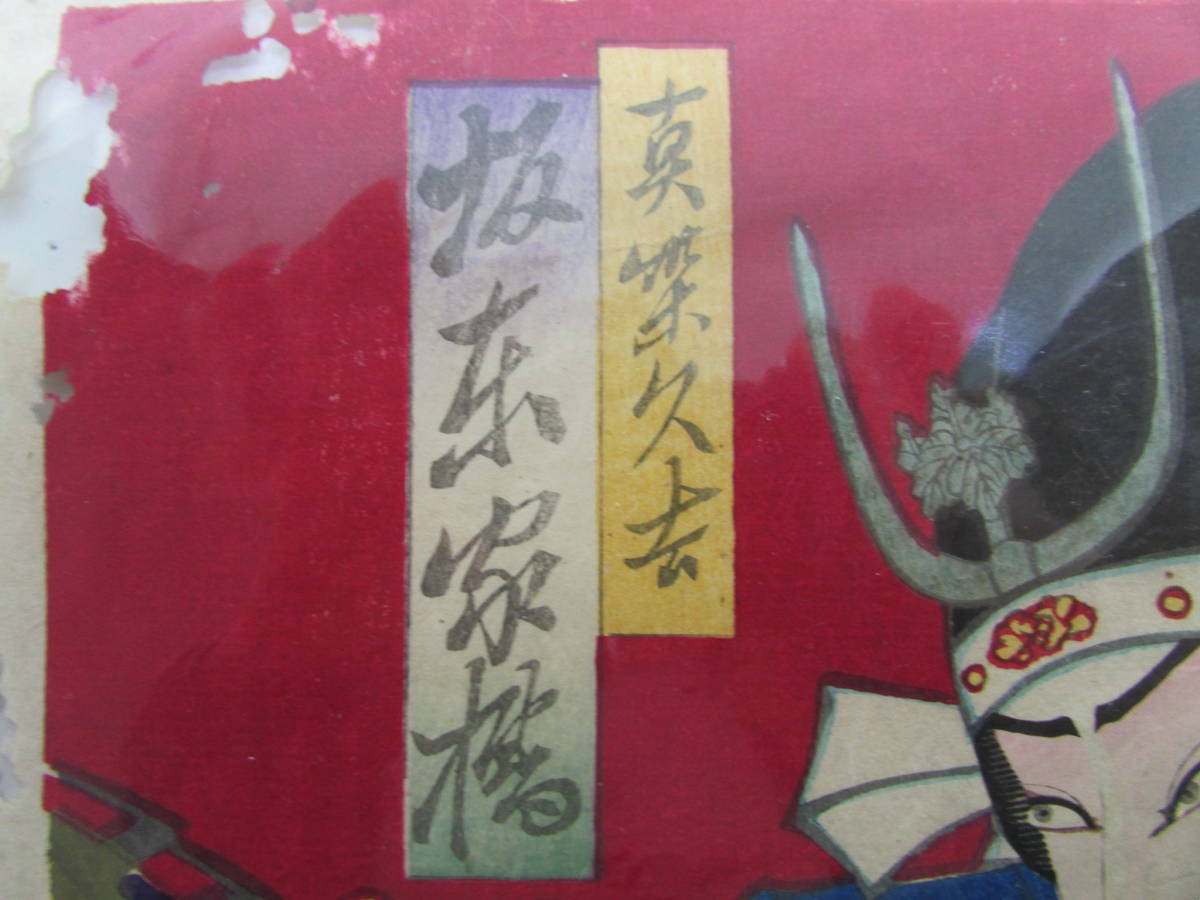 真柴久吉
坂東家橘